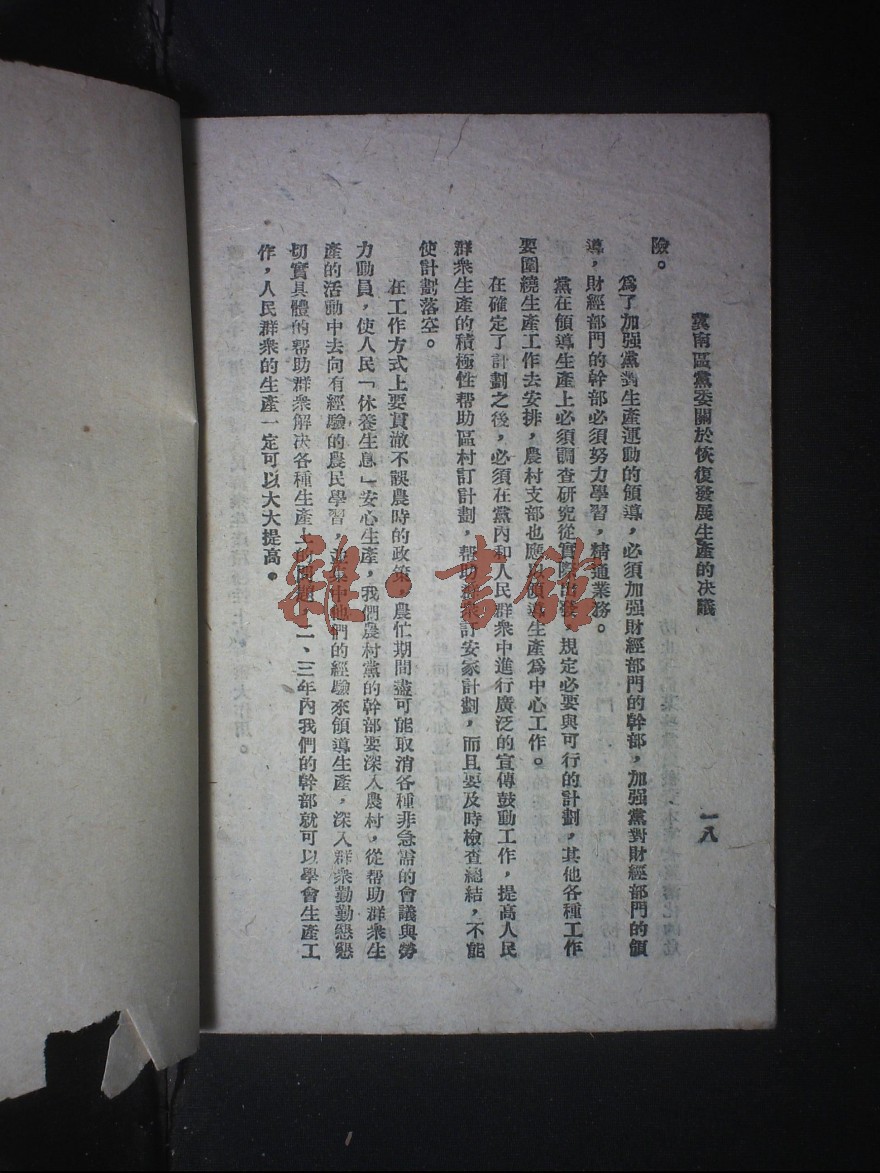 冀南區黨委關於恢復發展生產的决議
一八
險。
爲了加强黨對生產運動的領導，必須加强財經部門的幹部，加强黨對財經部門的領
導，財經部門的幹部必須努力學習，精通業務。
黨在領導生產上必須調查研究從實際出發，規定必要與可行的計劃，其他各種工作
要圍繞生產工作去安排，農村支部也應以領導生產爲中心工作。
在確定了計劃之後，必須在黨內和人民群衆中進行廣泛的宣傳鼓動工作，提高人民
群衆生產的積極性帮助區村訂計劃，帮助群衆訂安家計劃，而且要及時檢查總結，不能
使計劃落空。
在工作方式上要貫澈不誤農時的政策，農忙期間盡可能取消各種非急需的會議與勞
力動員，使人民「休養生息」安心生產，我們農村黨的幹部要深入農村，從帮助群衆生
產的活動中去向有經驗的農民學習，並集中他們的經驗來領導生產，深入群衆勤勤懇懇
切實具體的帮助群衆解决各種生產上的問題，二、三年內我們的幹部就可以學會生產工
作，人民群衆的生產一定可以大大提高。
雜·書館